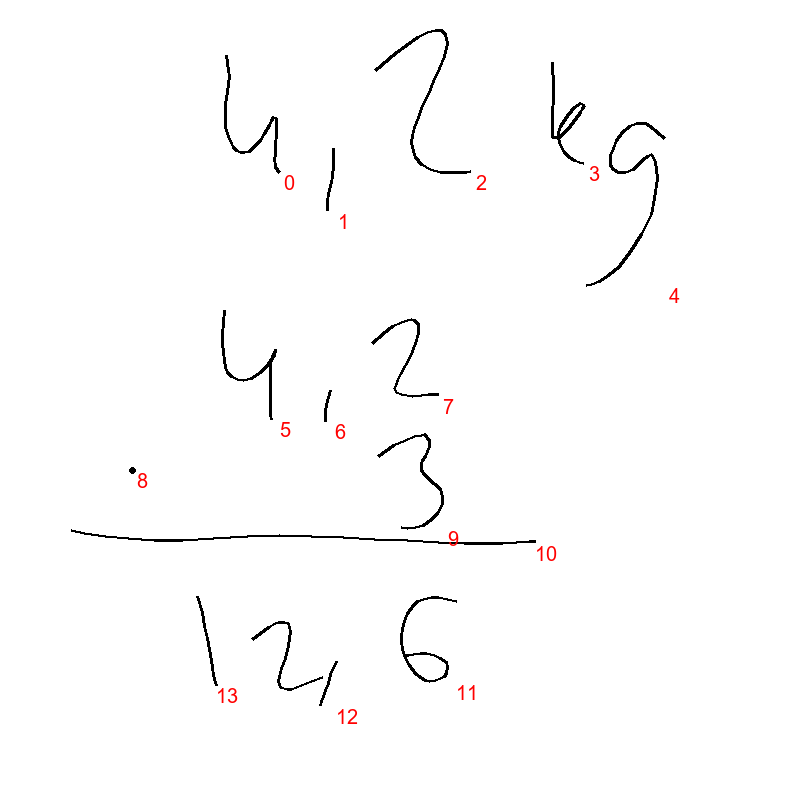 4,2 kg
0 1 2 3 4
4,2
5 6 7
· 3
8 9
10
12,6
13 12 11